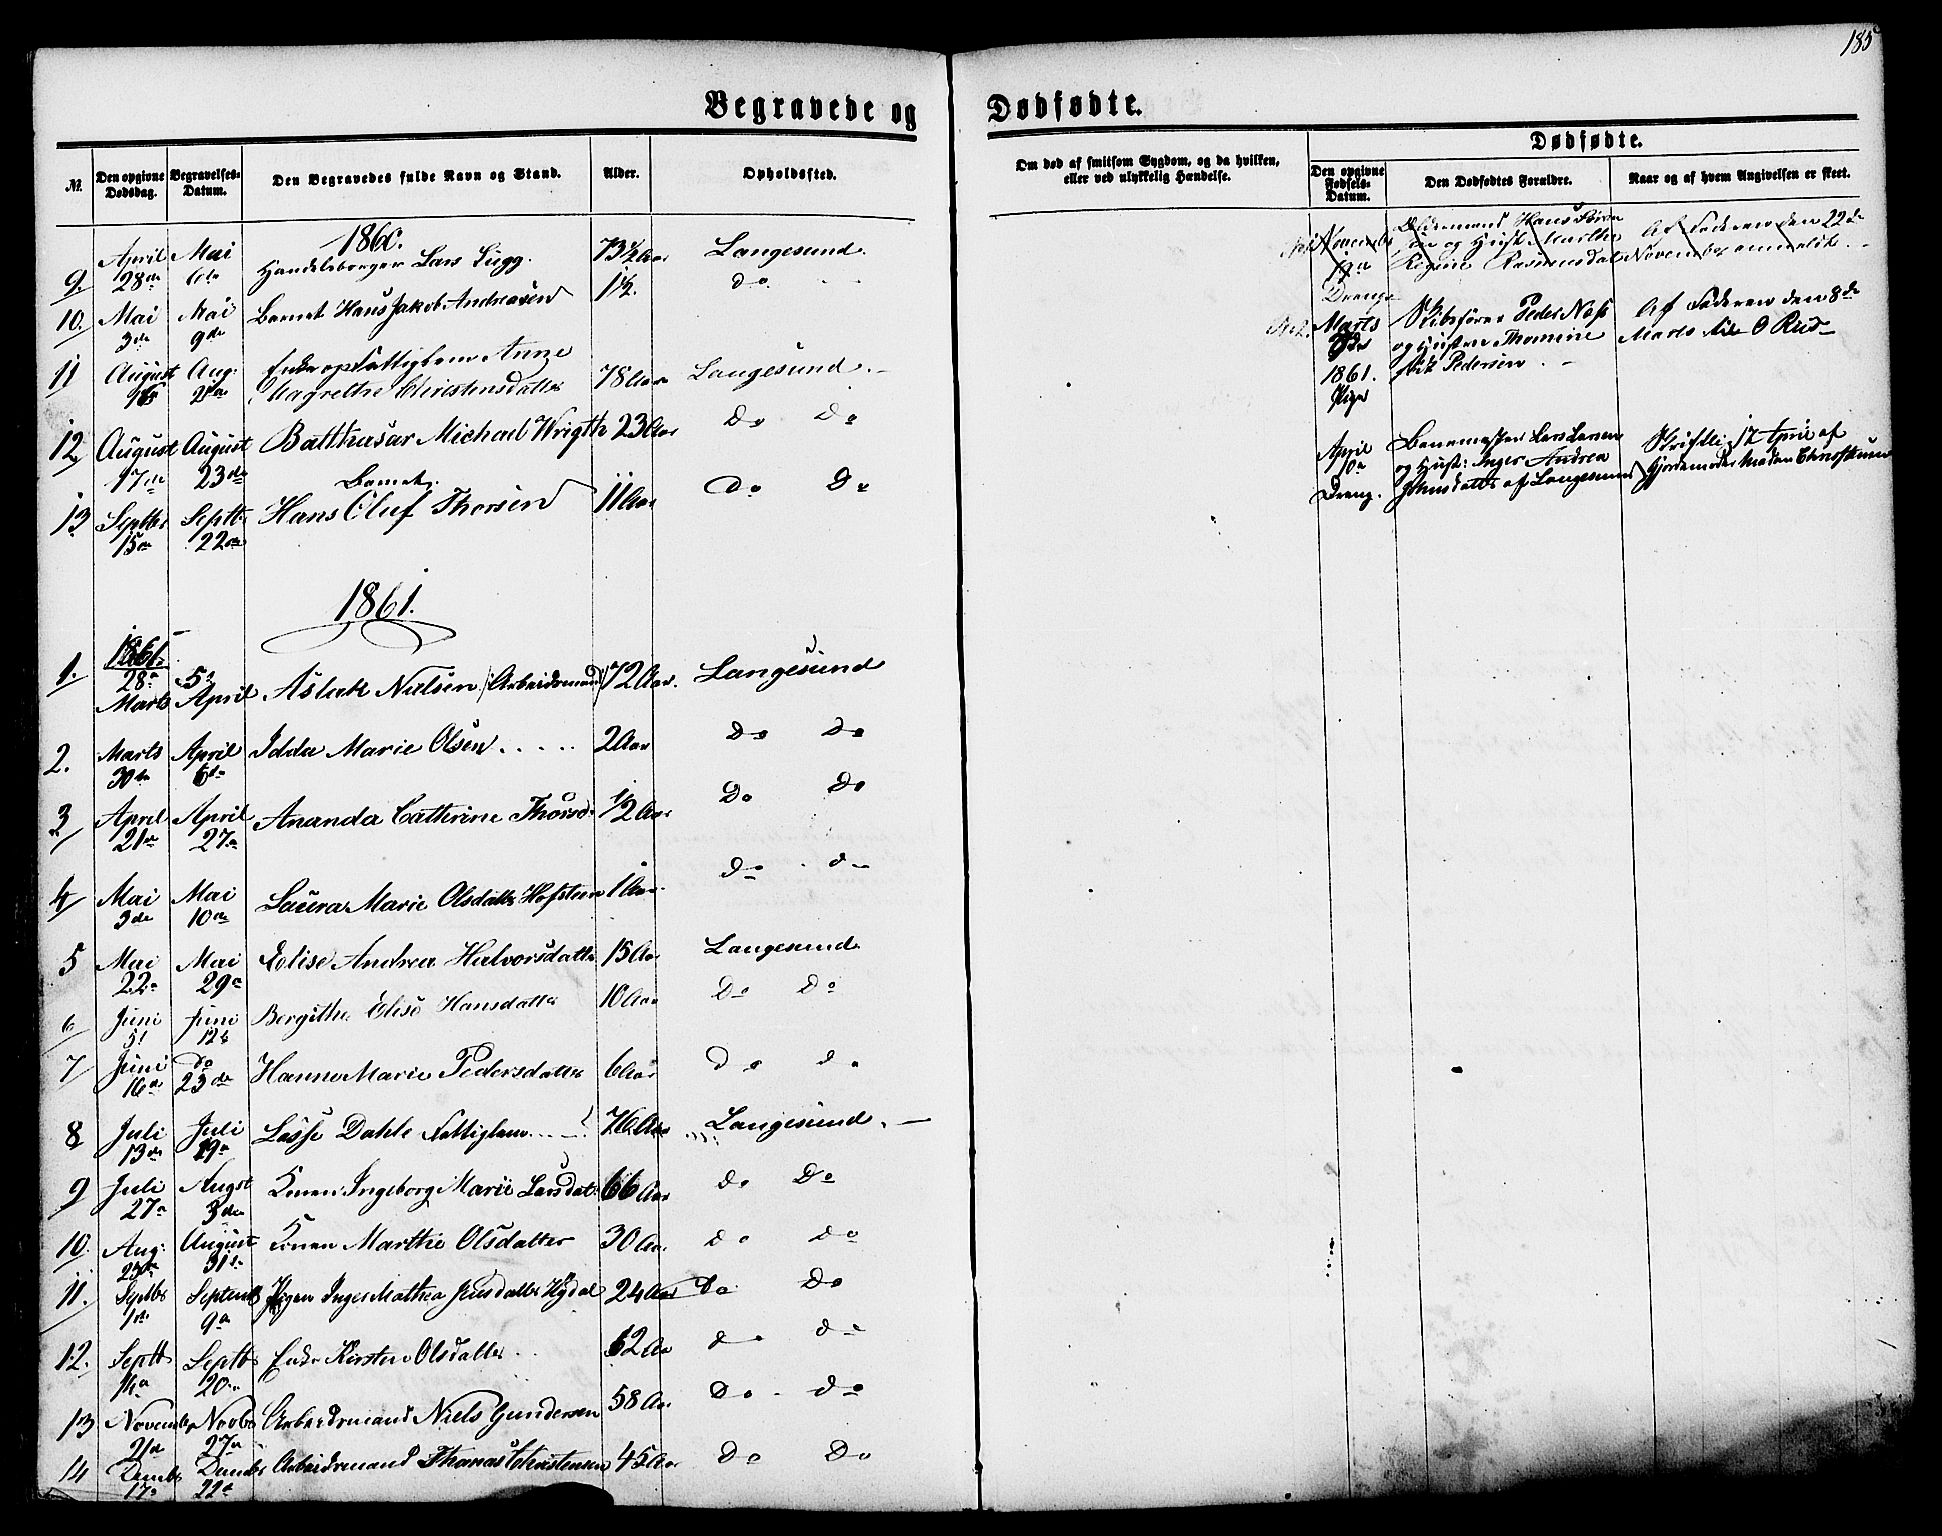 185
Begravede og Dødfødte.
№ Den opgivne Dødsdag. Begravelses-Datum. Den Begravedes fulde Navn og Stand. Alder. Opholdssted.
Om død af smitsom Sygdom, og da hvilken, eller ved ulykkelig Hændelse.
Dødfødte.
Den opgivne Fødsels-Datum. Den Dødfødtes Forældre. Naar og af hvem Angivelsen er skeet.
1860.
9. April 28de Mai 6te Handelsborger Lars Sugg. 73½ Aar Langesund.
10. Mai 3de Mai 9de Barnet Hans Jakob Andreasen 1½. do
11 August Aug: Enke og Fattiglem Anne Magrethe Christensdatter 78 Aar Langesund.
12 August 17de August 23de Balthasar Michael Wrigth 23 Aar Do Do
13 Septbr 15de Septbr 22de Barnet Hans Oluf Thorsen 11 Aar Do Do
1861.
1861.
1. 28de Marts 5te April Aslak Nielsen (Arbeidsmand) 72 Aar. Langesund
2. Marts 30te April 6te Idda Marie Olsen 2 Aar Do Do
3 April 21de April 27de Ananda Cathrine Thorsd. ½ Aar Do Do
4 Mai 3de Mai 10de Laura Marie Olsdatter Hofsteen 1 Aar Do do
5 Mai 22de Mai 29de Elise Andrea Halvorsdatter 15 Aar Langesund
6 Juni 5t Juni 12te Bergithe Elise Hansdatter 10 Aar Do Do
7 Juni 16de Do 23de Hanne Marie Pedersdatter 6 Aar Do do
8 Juli 13de Juli 19de Lasse Dahle Fattiglem 76 Aar Langesund.
9 Juli 27de Augst 3de Konen Ingeborg Marie Larsdatt. 66 Aar do Do
10. Aug: August 31te Konen Marthe Olsdatter 30 Aar do Do
11. Septbr 1ste Septemb 9de Pigen Inger Mathea Jensdatter 24 Aar Do Do
12. Septb Septbr 20de Enke Kirsten Olsdatter 62 Aar do do
13 November 21de Novbr 27de Arbeidsmand Niels Gundersen 58 Aar Do do
14 Decmbr 17de Decmbr 22de Arbeidsmand Thomas Christensen 45 Aar Do Do
November Drenge Hans og Hust Marthe Regine Rasmusdatter Af Faderen den 22de November anmeldt.
Marts 1861. Pige Skibsfører Peder Næss og Hustru Thomine Pedersen Af Faderen den 8de Marts
April Dreng. Lars Larsen og Hust: Inger Andrea af Langesund Skriftli. 12 April af Gjordemoder Madam